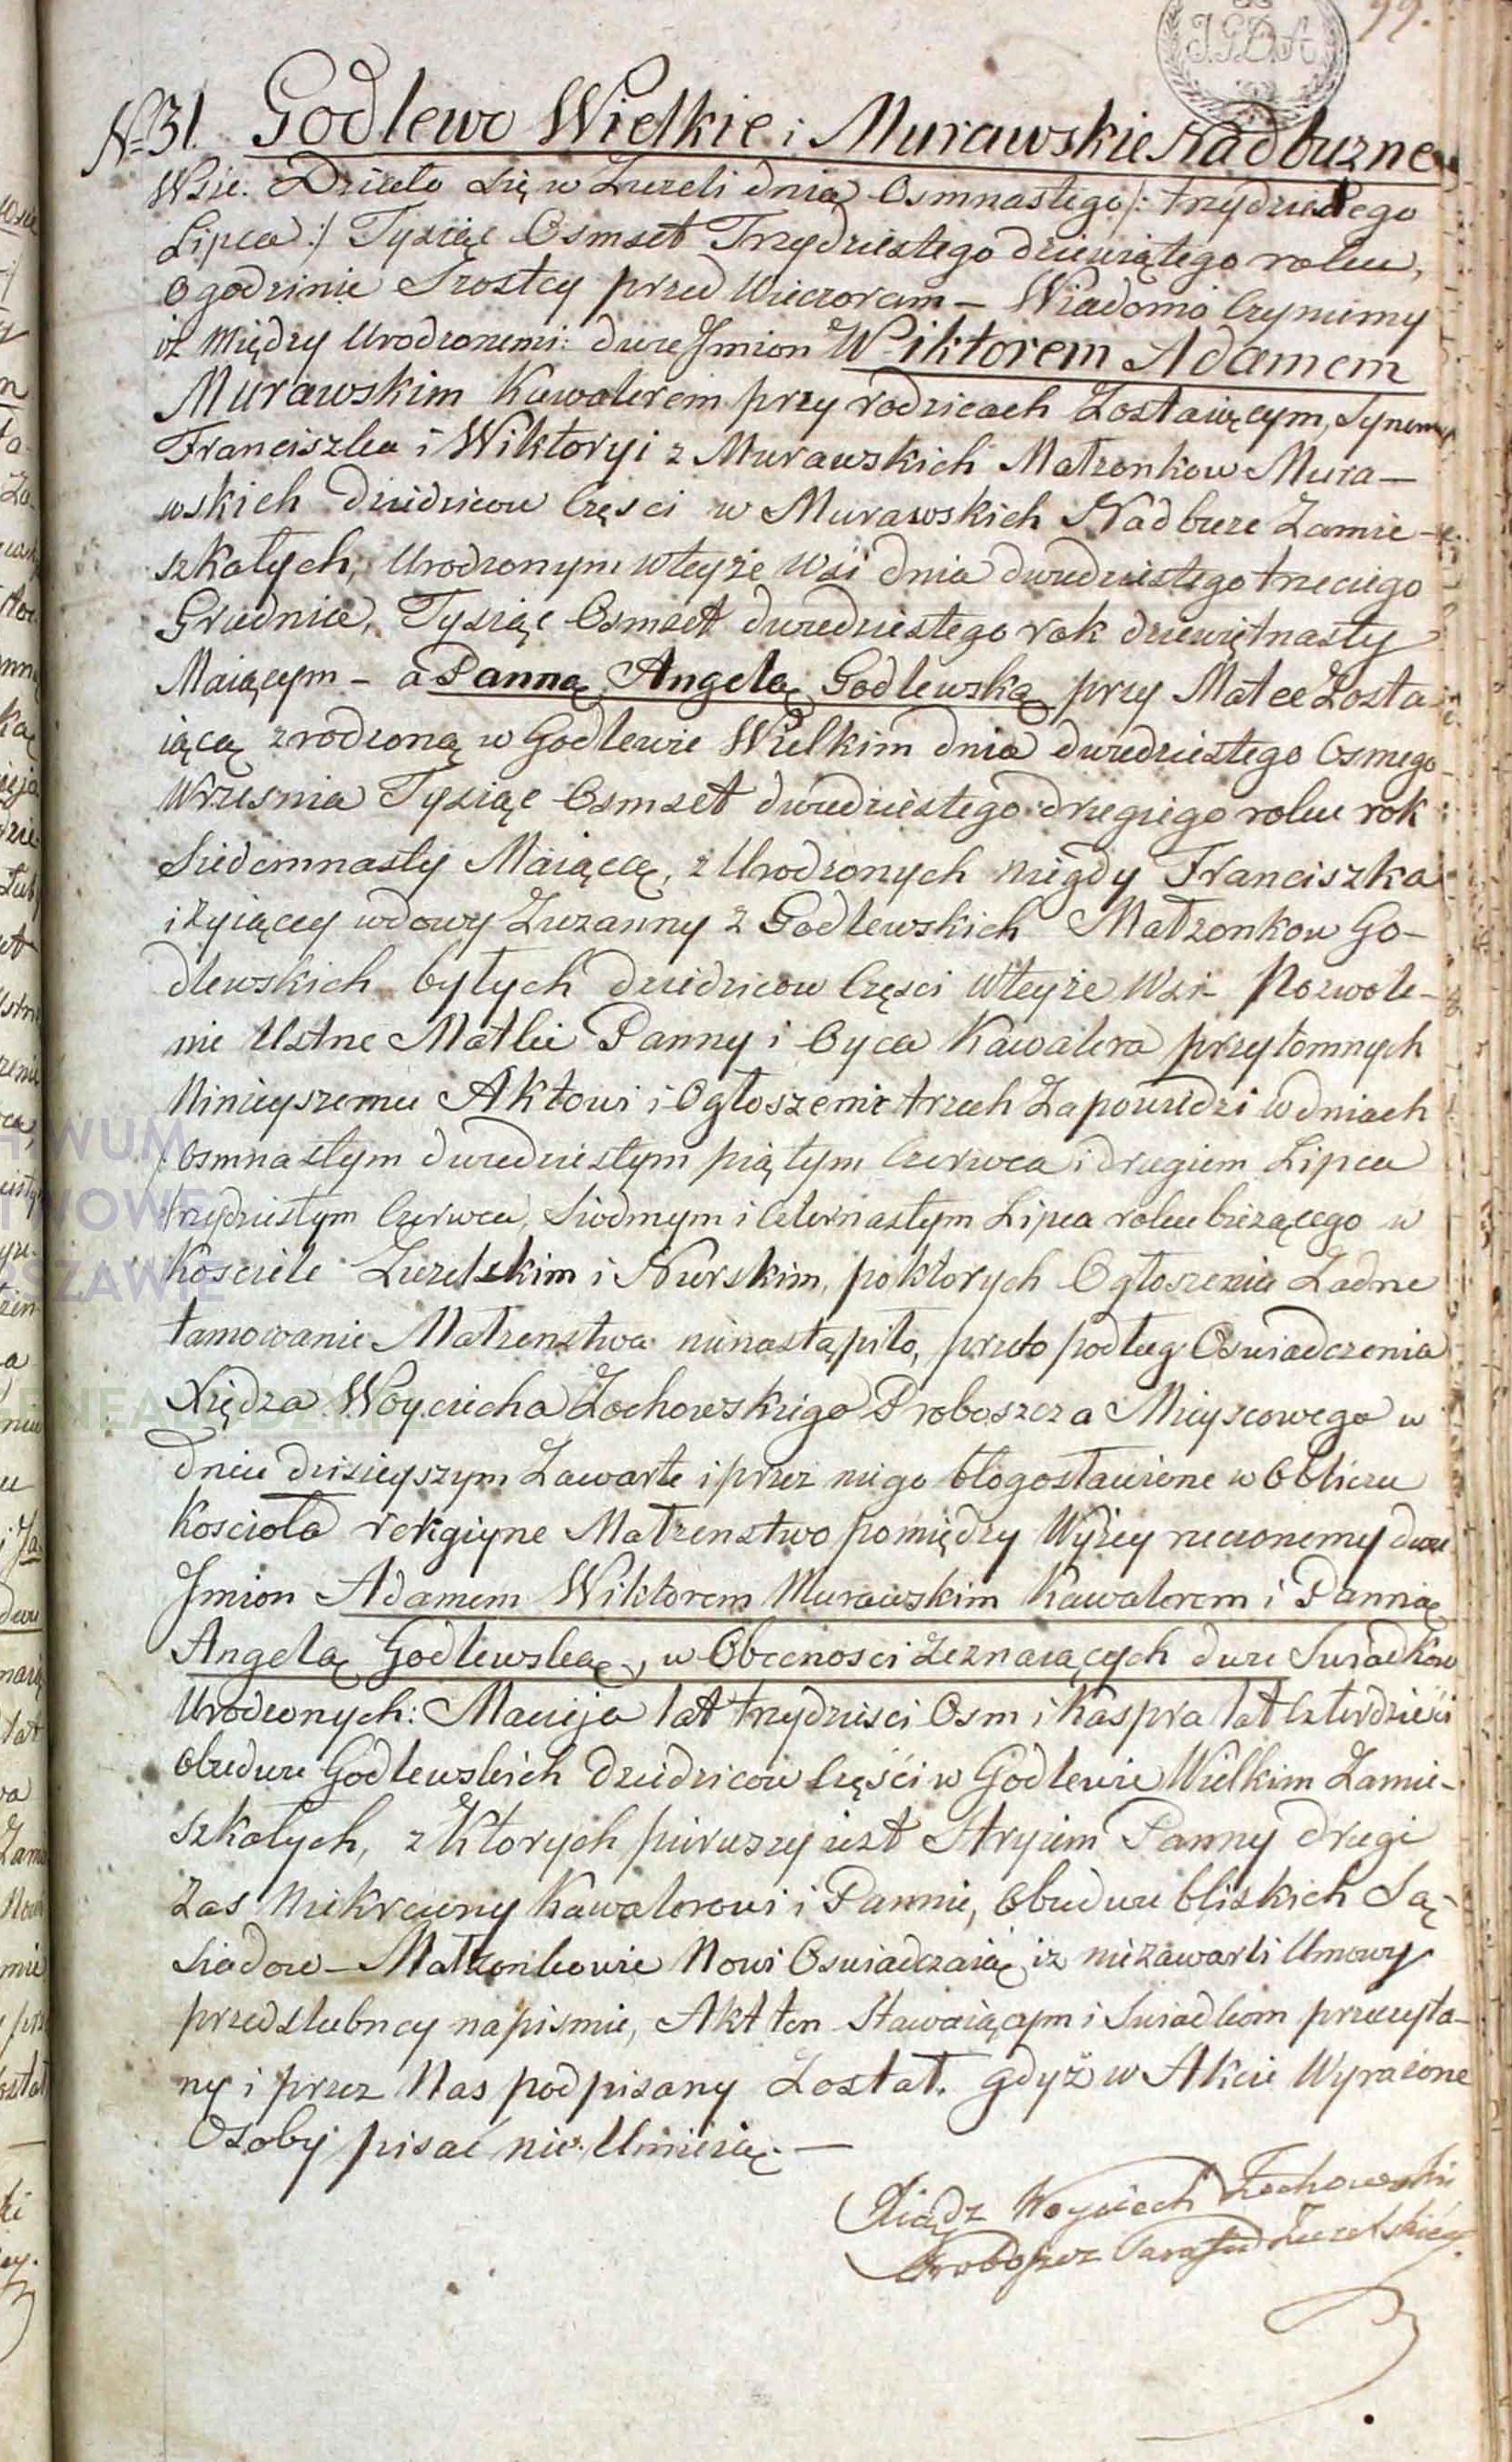 99.
J.G.D.A
№ 31. Godlewo Wielkie i Murawskie Nadbuzne
Wsie. Działo się w Zuzeli dnia Osmnastego /: trzydziestego
Lipca :/ Tysiąc Osmset Trzydziestego dziewiątego roku,
o godzinie Szostey przed Wieczorem — Wiadomo Czyniemy
iż Między Urodzonemi: dwu Jmion Wiktorem Adamem
Murawskim Kawalerem przy rodzicach Zostaiącym, Synem
Franciszka i Wiktoryi z Murawskich Małzonkow Mura-
wskich dziedzicow Częsci w Murawskich Nadbuze Zamie-
szkałych, Urodzonym wteyże Wsi dnia dwudziestego trzeciego
Grudnia, Tysiąc Osmset dwudziestego rok dziewiętnasty
Maiącym - a Panną Angelą Godlewską przy Matce Zosta-
iącą zrodzoną w Godlewie Wielkim dnia dwudziestego Osmego
Wrzesnia Tysiąc Osmset dwudziestego drugiego roku rok
Siedemnasty Maiącą, z Urodzonych niegdy Franciszka
i zyiącey wdowy Zuzanny z Godlewskich Małzonkow Go-
dlewskich byłych dziedzicow Częsci wteyże Wsi - Pozwole-
nie Ustne Matki Panny i Oyca Kawalera przytomnych
Ninieyszemu Aktowi i Ogłoszenie trzech Zapowiedzi w dniach
/: Osmnastym dwudziestym piątym Czerwca i drugiem Lipca
trzydziestym Czerwca, Siodmym i Czternastym Lipca roku bieżącego w
Kosciele Zuzelskim i Nurskim, poktorych Ogłoszeniu Zadne
tamowanie Małzenstwa nienastąpiło, przeto podług Oswiadczenia
Xiędza Woyciecha Zochowskiego Proboszcza Mieyscowego w
dniu dzisieyszym Zawarte i przez niego błogosławione w Obliczu
Kosciola religiyne Małzenstwo pomiędzy Wyżey rzeczonemy dwu
Jmion Adamem Wiktorem Murawskim Kawalerem i Panną
Angelą Godlewską, w Obecnosci Zeznaiących dwu Swiadkow
Urodzonych: Macieja lat trzydziesci Osm i Kaspra lat Czterdziesci
Obudwu Godlewskich Dziedzicow Częsci w Godlewie Wielkim Zamie-
szkałych, z Ktorych pierwszy iest Stryiem Panny drugi
Zas Niekrewny Kawalerowi i Pannie, Obudwu bliskich Są-
siadow — Małzonkowie Nowi Oswiadczaią iz niezawarli Umowy
przedslubney napismie, Akt ten Stawaiącym i Swiadkom przeczyta-
ny i przez Nas podpisany Został. gdyż w Akcie Wyrażone
Osoby pisać nie Umieią. —
Xiądz Woyciech Zochowski
Proboszcz Parafii Zuzelskiey